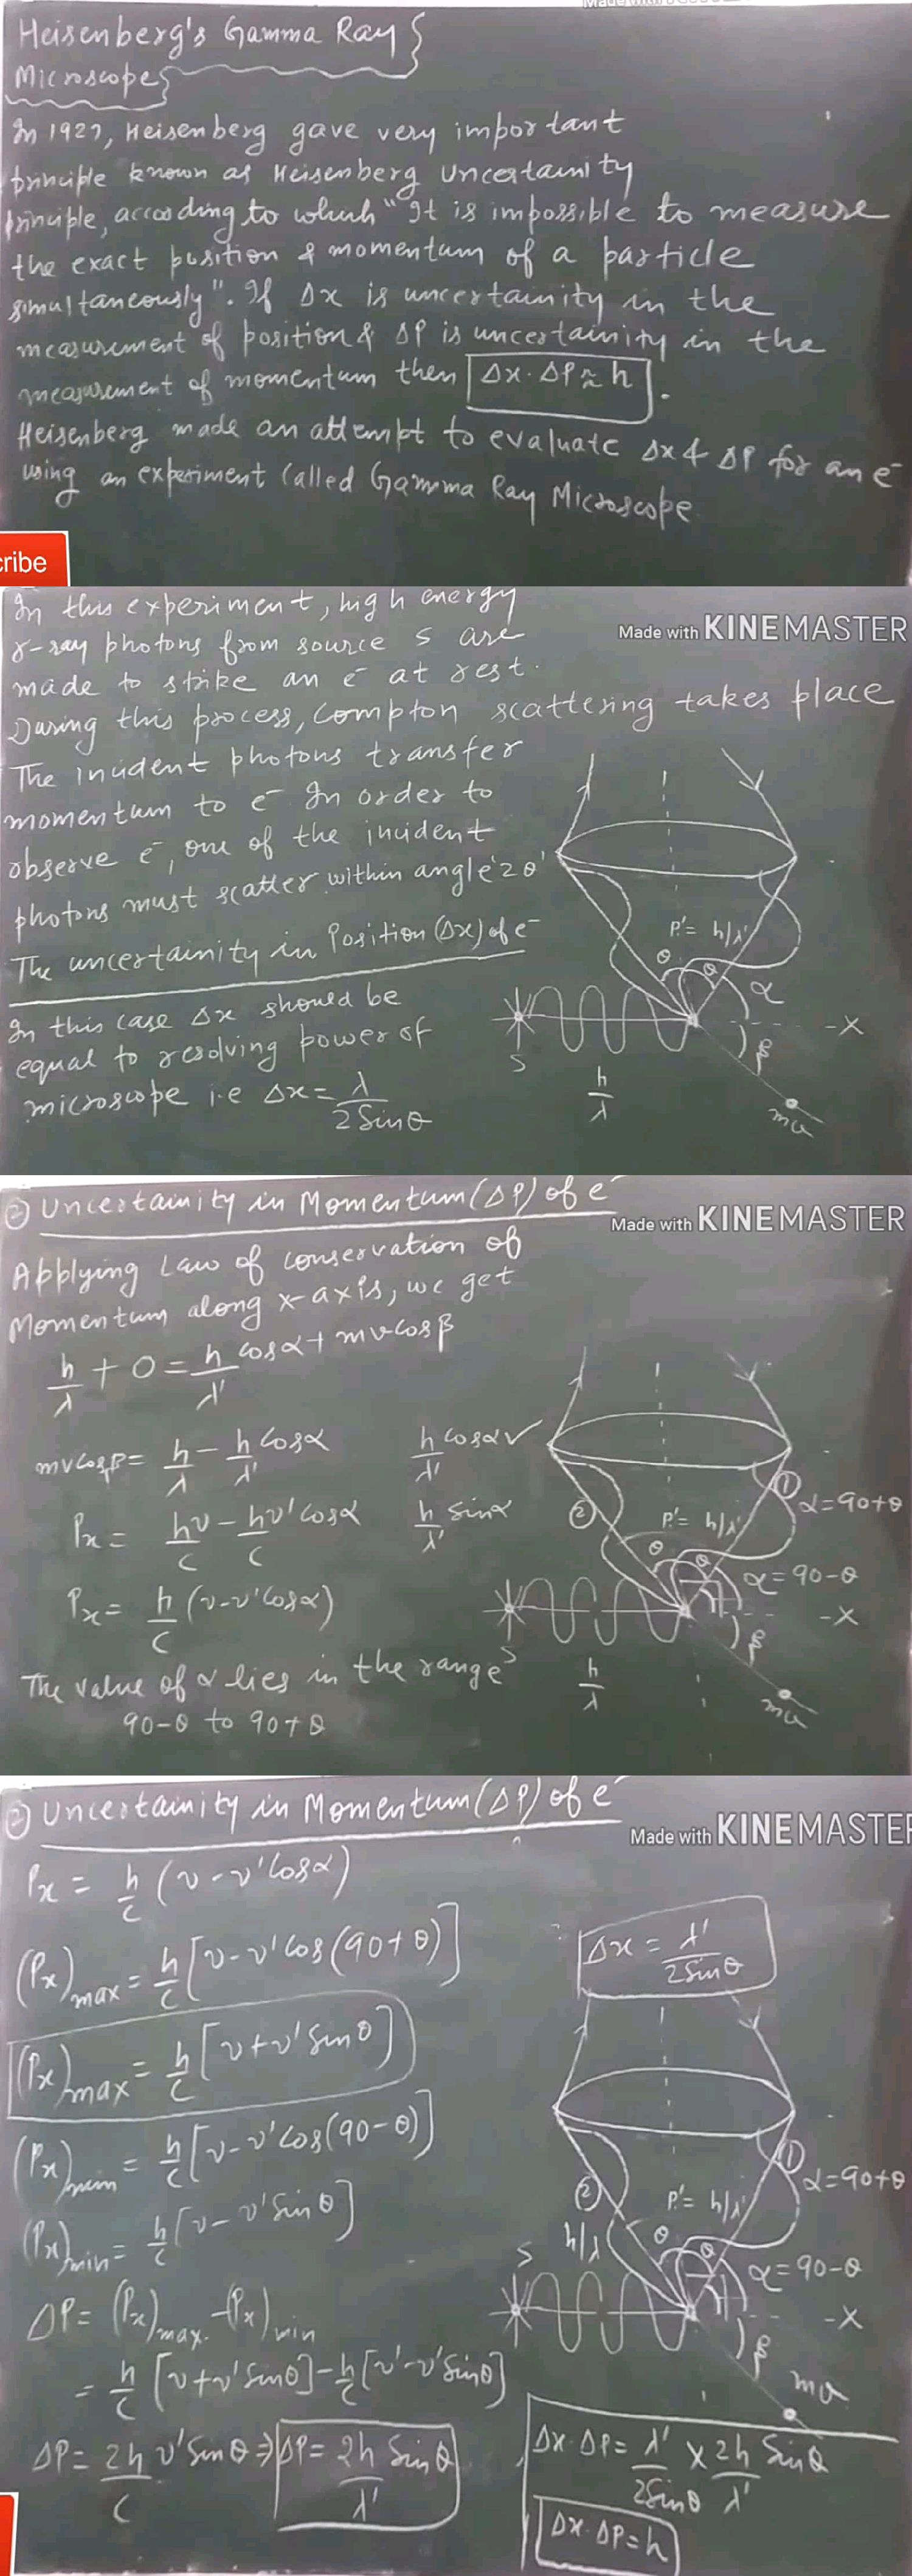 Heisenberg's Gamma Ray
Microscope
In 1927, Heisenberg gave very important
principle known as Heisenberg Uncertainity
principle, according to which "It is impossible to measure
the exact position & momentum of a particle
simultaneously". If Δx is uncertainity in the
measurement of position & ΔP is uncertainity in the
measurement of momentum then Δx·ΔP≈h.
Heisenberg made an attempt to evaluate Δx & ΔP for an e⁻
using an experiment called Gamma Ray Microscope.
cribe
In this experiment, high energy
γ-ray photons from source S are
Made with KINEMASTER
made to strike an e⁻ at rest.
During this process, Compton scattering takes place
The incident photons transfer
momentum to e⁻ In order to
observe e⁻, one of the incident
photons must scatter within angle '2θ'
The uncertainity in Position (Δx) of e⁻
In this case Δx should be
equal to resolving power of
microscope i.e Δx = λ/2Sinθ
P' = h/λ'
θ θ
α
-X
β
S
h/λ
mv
② Uncertainity in Momentum (ΔP) of e⁻
Made with KINEMASTER
Applying Law of conservation of
Momentum along x-axis, we get
h/λ + 0 = h/λ' cosα + mv cosβ
mvcosβ = h/λ - h/λ' cosα
h/λ' cosα ✓
Px = hν/c - hν'/c cosα
h/λ' sinα
Px = h/c (ν-ν'cosα)
The value of α lies in the range
90-θ to 90+θ
①
α=90+θ
②
P' = h/λ'
θ θ
α=90-θ
-X
β
S
h/λ
mv
② Uncertainity in Momentum (ΔP) of e⁻
Made with KINEMASTER
Px = h/c (ν-ν'cosα)
(Px)max = h/c [ν-ν'cos(90+θ)]
(Px)max = h/c [ν+ν'sinθ]
(Px)min = h/c [ν-ν'cos(90-θ)]
(Px)min = h/c [ν-ν'sinθ]
ΔP = (Px)max - (Px)min
= h/c [ν+ν'sinθ] - h/c [ν'-ν'sinθ]
ΔP = 2h/c ν'sinθ ⇒ ΔP = 2h/λ' Sinθ
Δx = λ'/2Sinθ
①
α=90+θ
②
P' = h/λ'
h/λ
θ θ
α=90-θ
S
-X
β
mv
Δx·ΔP = λ'/2Sinθ × 2h/λ' Sinθ
Δx·ΔP=h